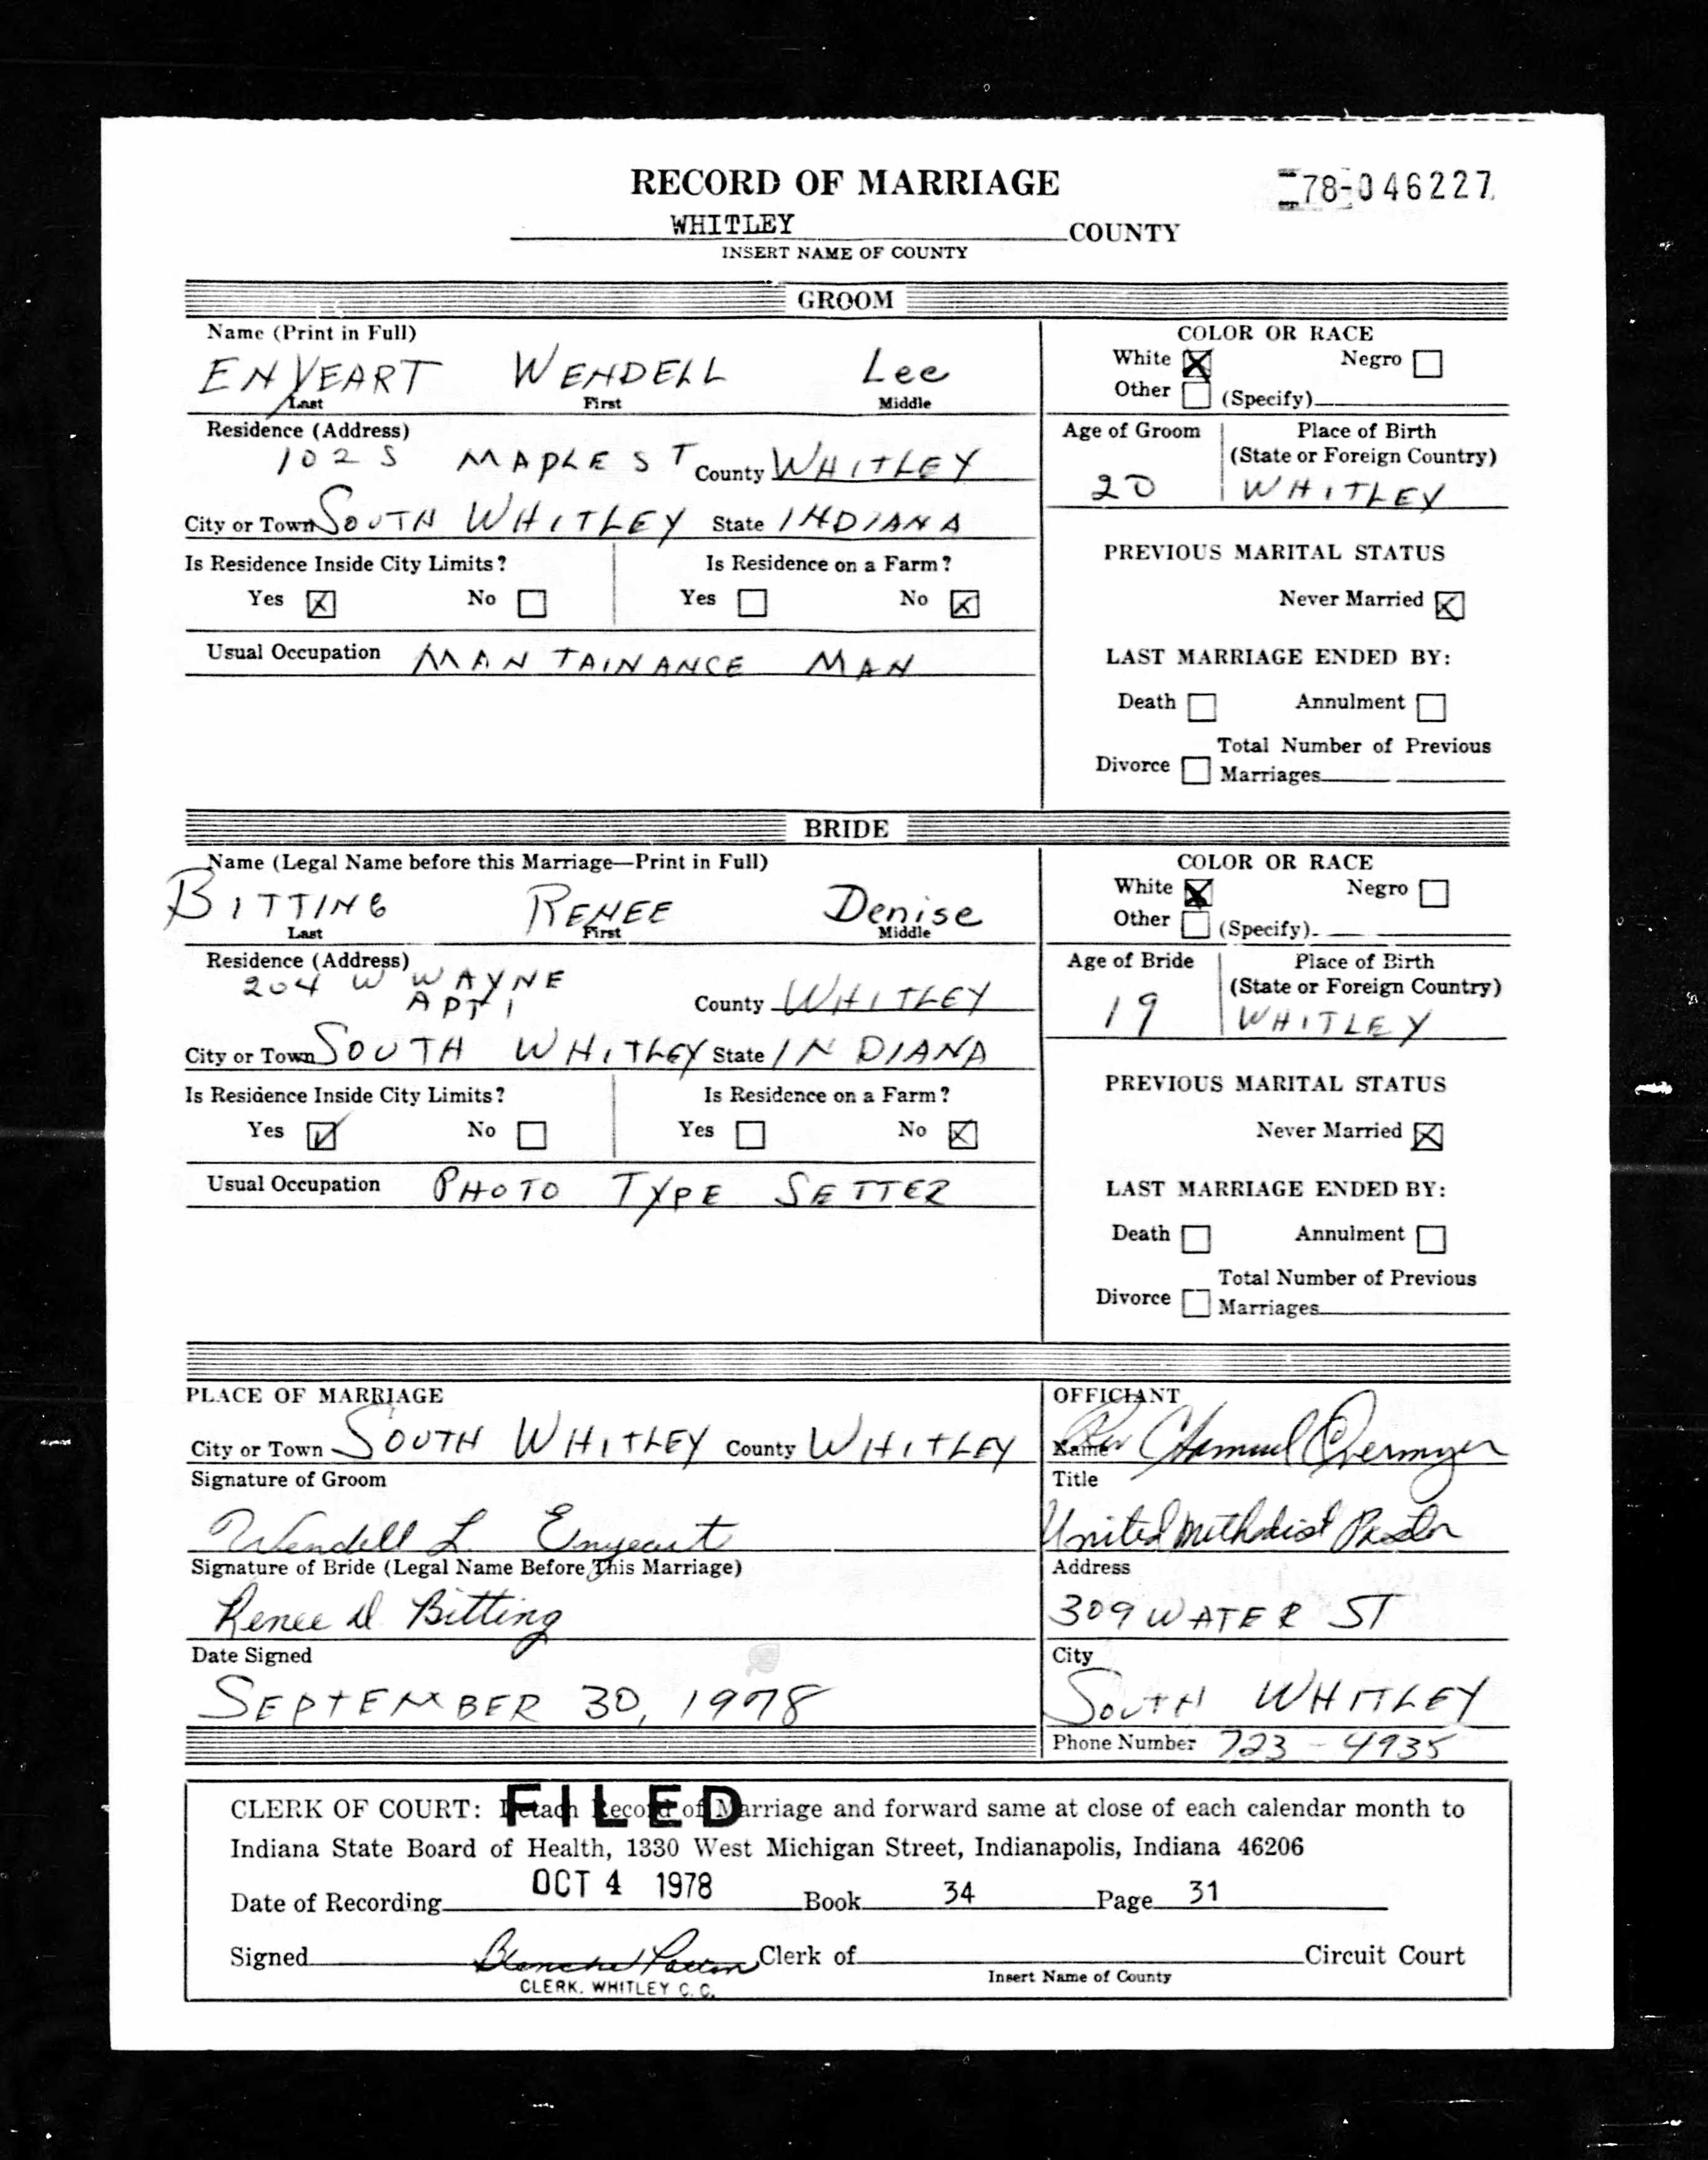 RECORD OF MARRIAGE
78-046227
WHITLEY COUNTY
INSERT NAME OF COUNTY
GROOM
Name (Print in Full)
ENYEART WENDELL Lee
Last First Middle
COLOR OR RACE
White X Negro
Other (Specify)
Residence (Address)
102 S MAPLE ST County WHITLEY
City or Town SOUTH WHITLEY State INDIANA
Age of Groom
20
Place of Birth
(State or Foreign Country)
WHITLEY
Is Residence Inside City Limits?
Yes X No
Is Residence on a Farm?
Yes No X
Usual Occupation MANTAINANCE MAN
PREVIOUS MARITAL STATUS
Never Married X
LAST MARRIAGE ENDED BY:
Death Annulment
Divorce Total Number of Previous
Marriages
BRIDE
Name (Legal Name before this Marriage—Print in Full)
BITTING RENEE Denise
Last First Middle
COLOR OR RACE
White X Negro
Other (Specify)
Residence (Address)
204 W WAYNE
APT 1
County WHITLEY
City or Town SOUTH WHITLEY State INDIANA
Age of Bride
19
Place of Birth
(State or Foreign Country)
WHITLEY
Is Residence Inside City Limits?
Yes No
Is Residence on a Farm?
Yes No X
Usual Occupation PHOTO TYPE SETTER
PREVIOUS MARITAL STATUS
Never Married X
LAST MARRIAGE ENDED BY:
Death Annulment
Divorce Total Number of Previous
Marriages
PLACE OF MARRIAGE
City or Town SOUTH WHITLEY County WHITLEY
Signature of Groom
Wendell L. Enyeart
Signature of Bride (Legal Name Before This Marriage)
Renee D Bitting
Date Signed
SEPTEMBER 30, 1978
OFFICIANT
Name Rev Overmyer
Title
United Methodist Pastor
Address
309 WATER ST
City
SOUTH WHITLEY
Phone Number 723-4935
FILED
CLERK OF COURT: Detach Record of Marriage and forward same at close of each calendar month to
Indiana State Board of Health, 1330 West Michigan Street, Indianapolis, Indiana 46206
Date of Recording OCT 4 1978 Book 34 Page 31
Signed Blanche Clerk of Circuit Court
CLERK. WHITLEY C. C.
Insert Name of County